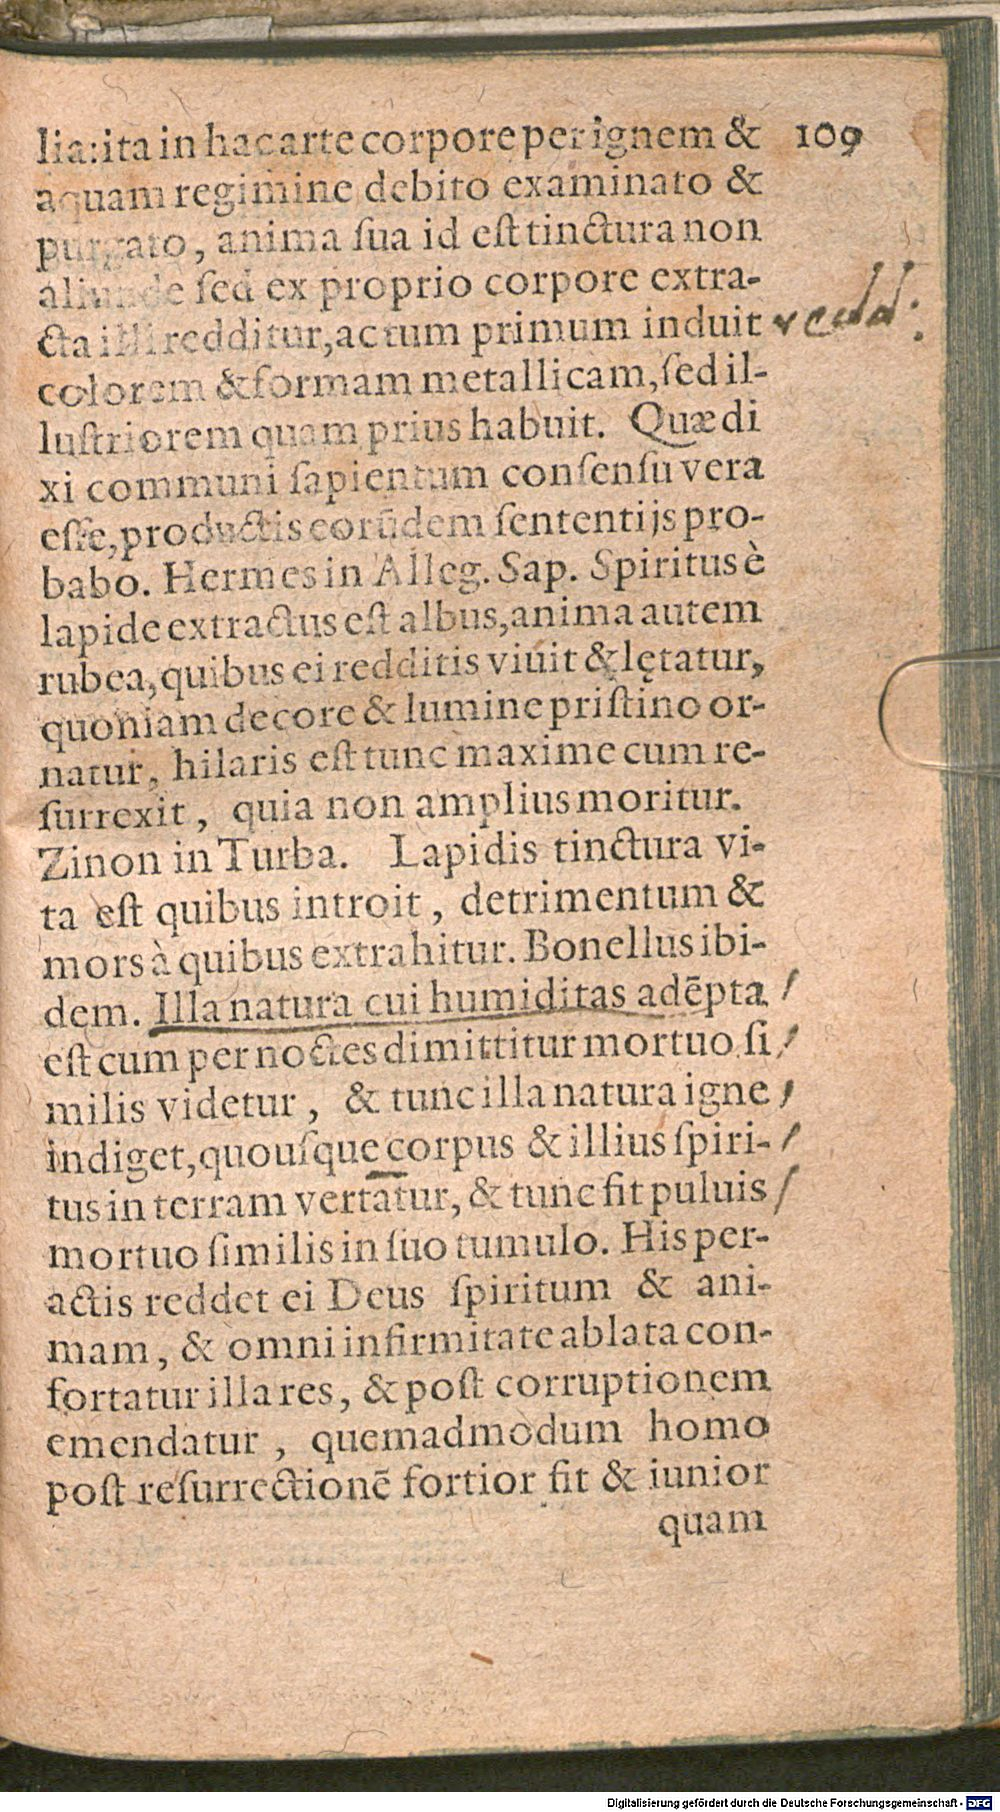 lia: ita in hac arte corpore per ignem & 109
aquam regimine debito examinato &
purgato, anima ſua id eſt tinctura non
aliunde ſed ex proprio corpore extra-
cta illi redditur, ac tum primum induit redd:
colorem & formam metallicam, ſed il-
luſtriorem quam prius habuit. Quæ di
xi communi ſapientum conſenſu vera
eſſe, productis eorūdem ſententijs pro-
babo. Hermes in Alleg. Sap. Spiritus è
lapide extractus eſt albus, anima autem
rubea, quibus ei redditis viuit & lętatur,
quoniam decore & lumine priſtino or-
natur, hilaris eſt tunc maxime cum re-
ſurrexit, quia non amplius moritur.
Zinon in Turba. Lapidis tinctura vi-
ta eſt quibus introit, detrimentum &
mors à quibus extrahitur. Bonellus ibi-
dem. Illa natura cui humiditas adēpta
eſt cum per noctes dimittitur mortuo ſi
milis videtur, & tunc illa natura igne
indiget, quouſque corpus & illius ſpiri-
tus in terram vertatur, & tunc fit puluis
mortuo ſimilis in ſuo tumulo. His per-
actis reddet ei Deus ſpiritum & ani-
mam, & omni infirmitate ablata con-
fortatur illa res, & poſt corruptionem
emendatur, quemadmodum homo
poſt reſurrectionē fortior fit & iunior
quam
Digitalisierung gefördert durch die Deutsche Forschungsgemeinschaft - DFG